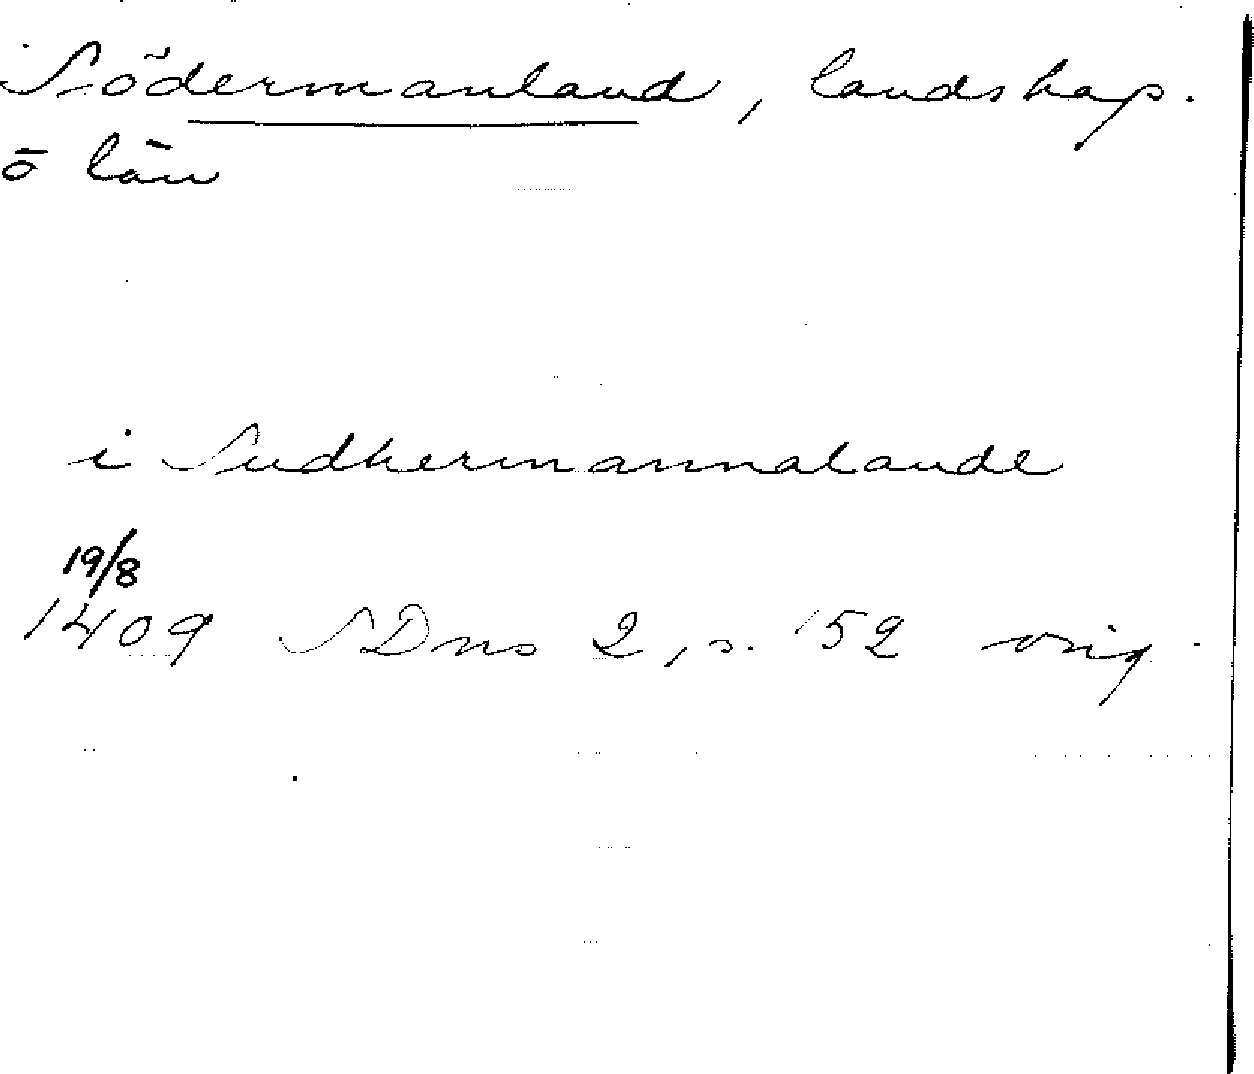 Södermanland, landskap.
o län
i Sudhermannalande
19/8
1409 SDns 2, s. 152 orig.